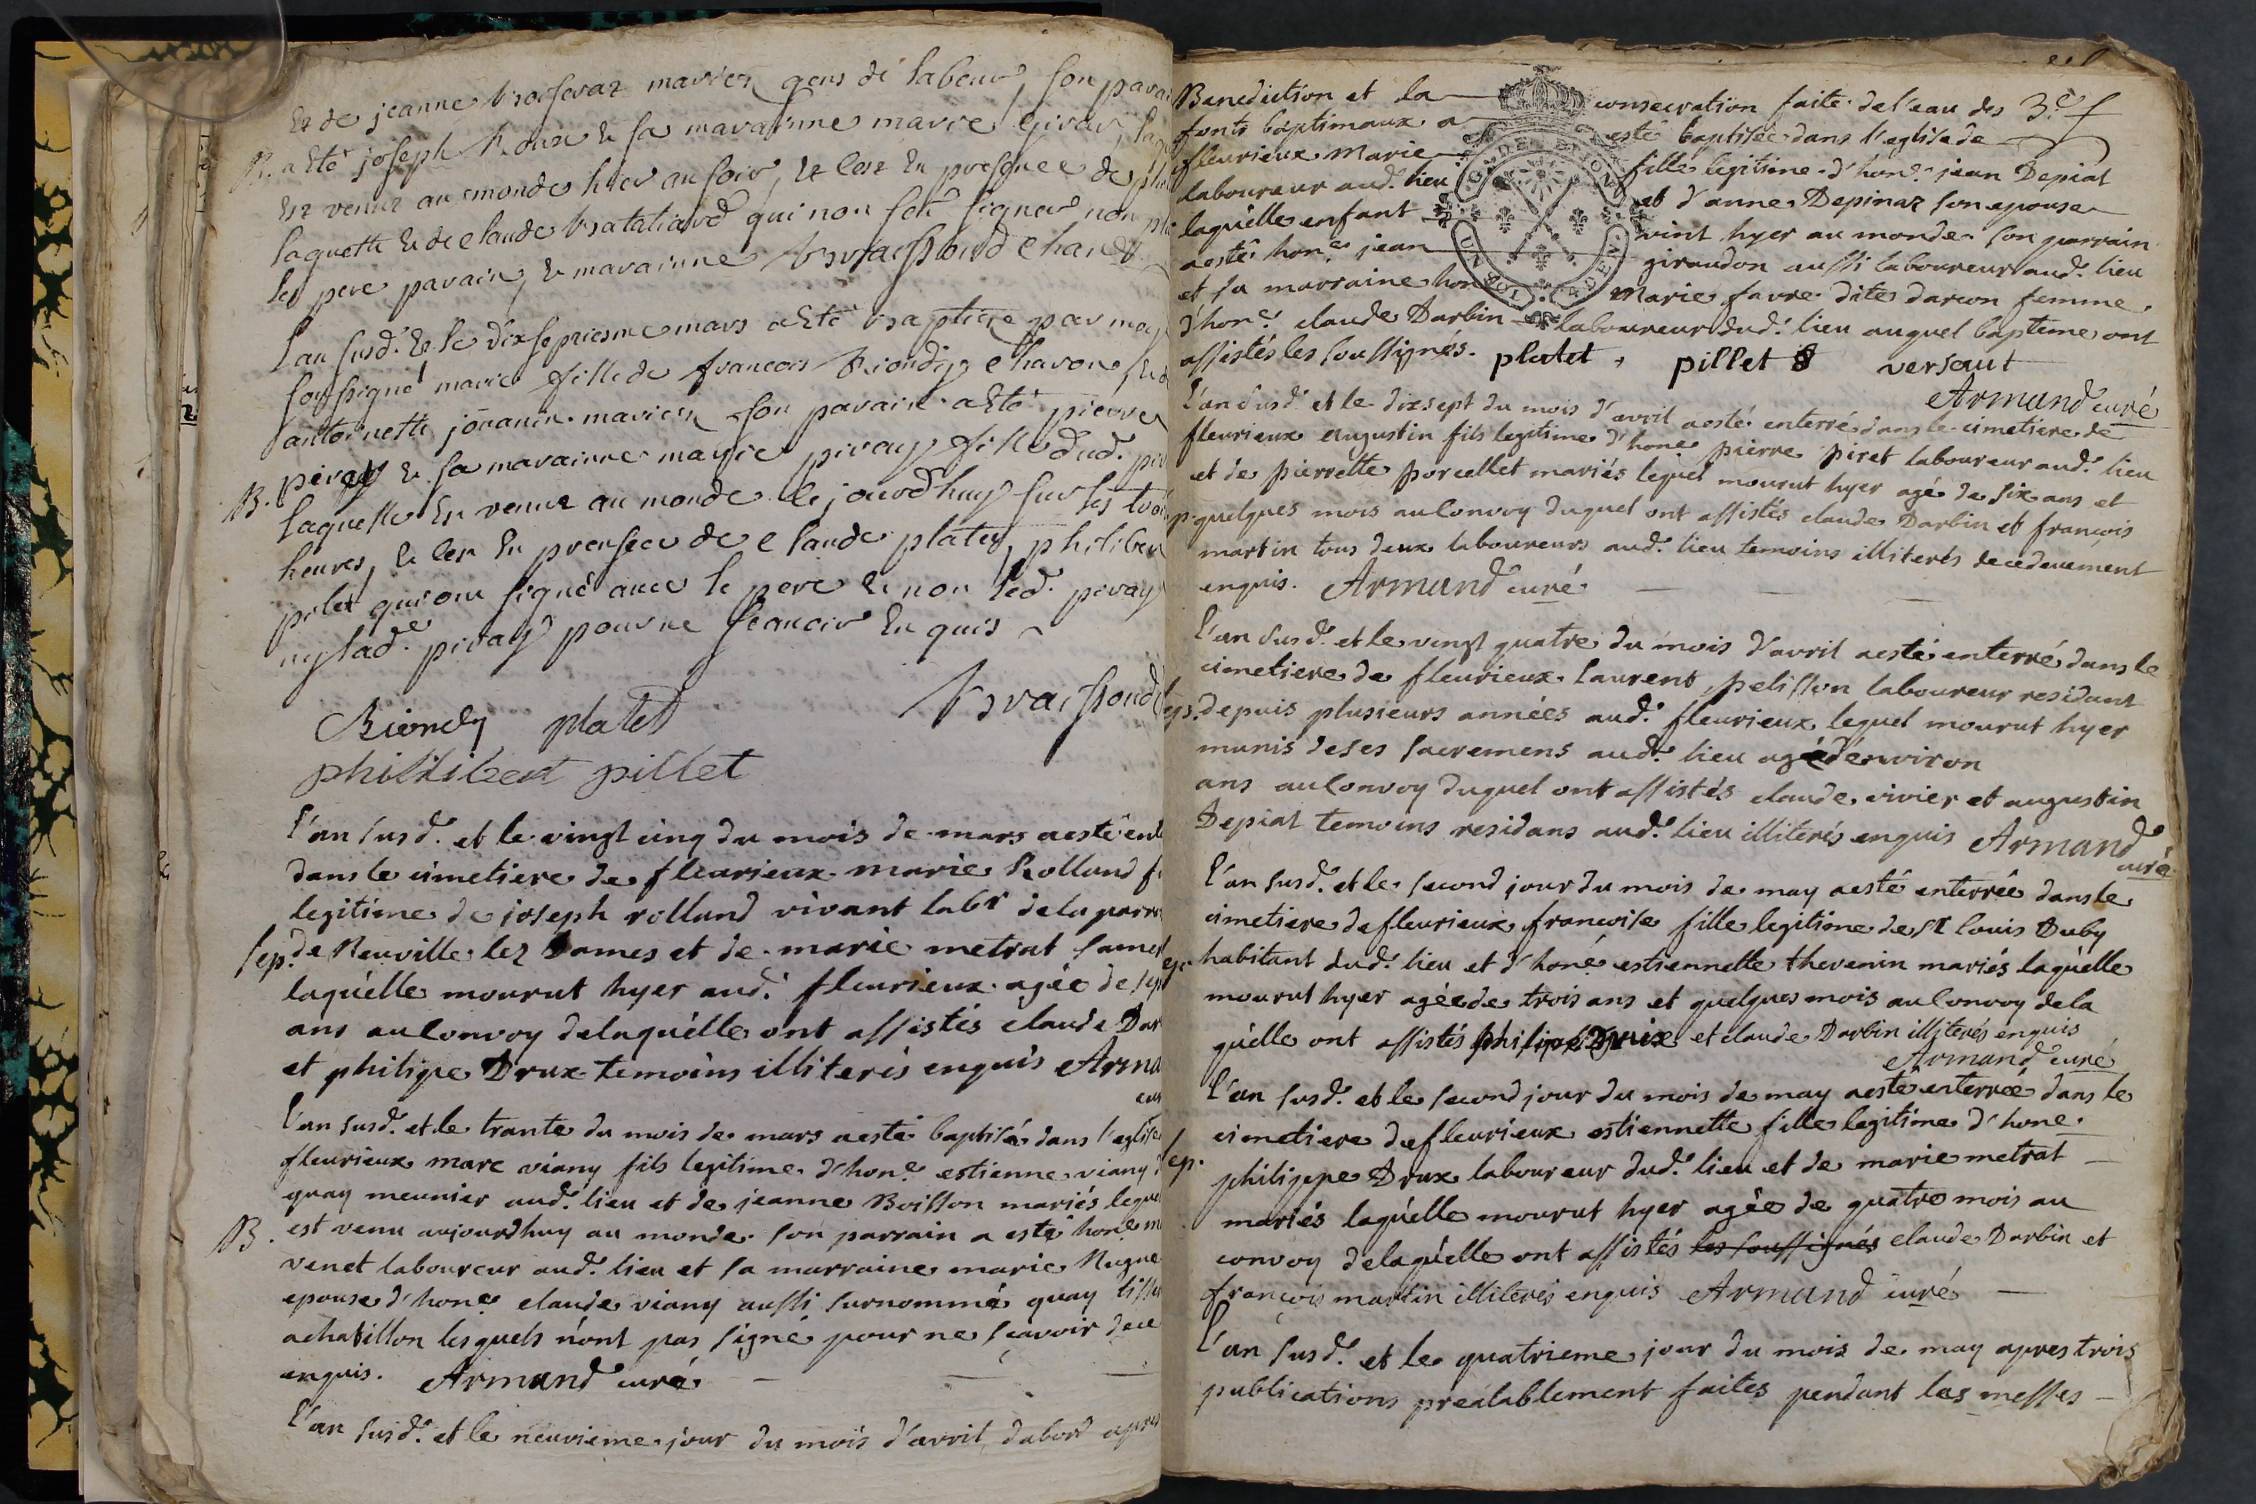 et de jeanne mariés gens de labeur, son parai
B. a été joseph Roux et sa maraînne marie Girar
est venue au monde hier au soir, et ce en presence de
laquelle et de claude qui non sçu signer non
les pere parain, et marainne
l'an susd. et le dixseptiesme mars a été baptisée par moy
soussigné marie fille de francois Riondy charon, et
antoinette mariés son parain a été pierre
B. piray et sa marainne marie piray fille dud.
laquelle est venue au monde cejourd'huy sur les trois
heures, et ce en presence de claude platet, philiber
pilet qui ont signé avec le pere et non led. piray
ny lad.e piray pour ne scavoir enquis
Riondy platet
philiibert pillet
l'an susd. et le vingt cinq du mois de mars a esté ent
dans le cimetiere de fleurieux marie Rolland f
legitime de joseph rolland vivant labr de la parr
sep. de Neuville lez Dames et de marie metrat
laquélle mourut hyer aud. fleurieux agée de sep
ans au Convoy de laquélle ont assistés claude Dar
et philippe Drux temoins illiterés enquis Arma
cur
l'an susd. et le trante du mois de mars a esté baptisé dans l'eglise
fleurieux marc viany fils legitime d'hone estienne viany d
quay meunier aud. lieu et de jeanne Boisson mariés leque
B. est venu aujourdhuy au monde son parrain a esté hone m
venet laboureur aud. lieu et sa marraine marie
epouse d'hone claude viany aussi surnommé quay tiss
a chatillon lesquels n'ont pas signé pour ne sçavoir de ce
enquis. Armand curé
l'an susd. et le neuvieme jour du mois d'avril, dabord apres
Benediction et la consecration faite de l'eau des
fonts baptimaux a esté baptisée dans l'eglise de
fleurieux Marie fille legitime d'hone jean Depiat
laboureur aud. lieu et d'anne Depinaz son epouse
laquélle enfant vint hyer au monde son parrain
a esté hone jean giraudon aussi laboureur aud. lieu
et sa marraine hone Marie favre dite darcon femme
d'hone claude Darbin laboureur dud. lieu auquel bapteme ont
assistés les soussignés. platet, pillet versaut
Armand curé
l'an susd. et le dixsept du mois d'avril a esté enterré dans le cimetiere de
fleurieux augustin fils legitime d'hone pierre piret laboureur aud. lieu
et de pierrette porcellet mariés lequel mourut hyer agé de six ans et
quelques mois au Convoy duquel ont assistés claude Darbin et françois
martin tous deux laboureurs aud. lieu temoins illiterés de ce deuement
enquis. Armand curé
l'an susd. et le vingt quatre du mois d'avril a esté enterré dans le
cimetiere de fleurieux laurent pelisson laboureur residant
depuis plusieurs années aud. fleurieux lequel mourut hyer
munis de ses sacremens aud. lieu agé d'environ
ans au Convoy duquel ont assistés claude vivier et augustin
Depiat temoins residans aud. lieu illiterés enquis Armand
curé
l'an susd. et le second jour du mois de may a esté enterrée dans le
cimetiere de fleurieux francoise fille legitime de sr louis Duby
habitant dud. lieu et d'hone estiennette thevenin mariés laquélle
mourut hyer agée de trois ans et quelques mois au Convoy de la
quélle ont assistés philipe Drux et claude Darbin illiterés enquis
Armand curé
l'an susd. et le second jour du mois de may a esté enterrée dans le
cimetiere de fleurieux estiennette fille legitime d'hone.
ep. philippe Drux laboureur dud. lieu et de marie metrat
mariés laquélle mourut hyer agée de quatre mois au
convoy de laquélle ont assistés les soussignés claude Darbin et
françois martin illiterés enquis Armand curé
l'an susd. et le quatrieme jour du mois de may apres trois
publications préalablement faites pendant les messes